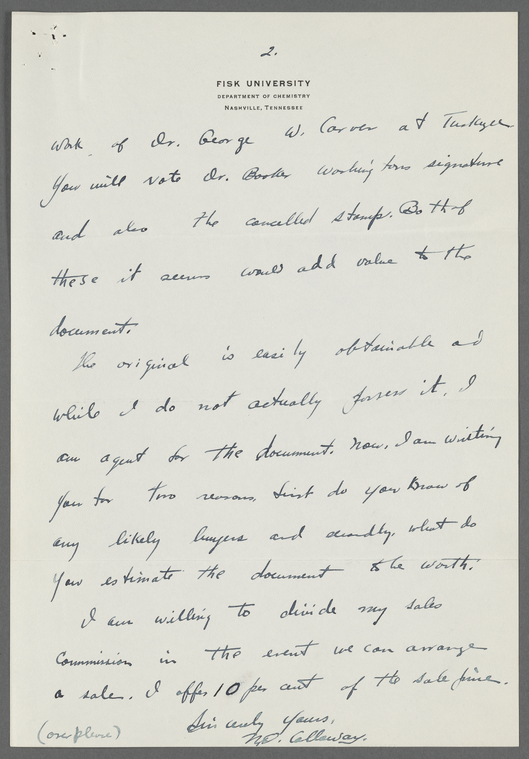 2.
FISK UNIVERSITY
DEPARTMENT OF CHEMISTRY
NASHVILLE, TENNESSEE
work of Dr. George W. Carver at Tuskegee
You will note Dr. Booker Washingtons signature
and also the cancelled stamp. Both of
these it seems would add value to the
document.
The original is easily obtainable ad
while I do not actually possess it, I
am agent for the document. Now, I am writing
you for two reasons, first do you know of
any likely buyers and secondly, what do
you estimate the document to be worth.
I am willing to divide my sales
commission in the event we can arrange
a sale. I offer 10 per cent of the sale price.
Sincerely yours,
N.O. Calloway.
(over please)